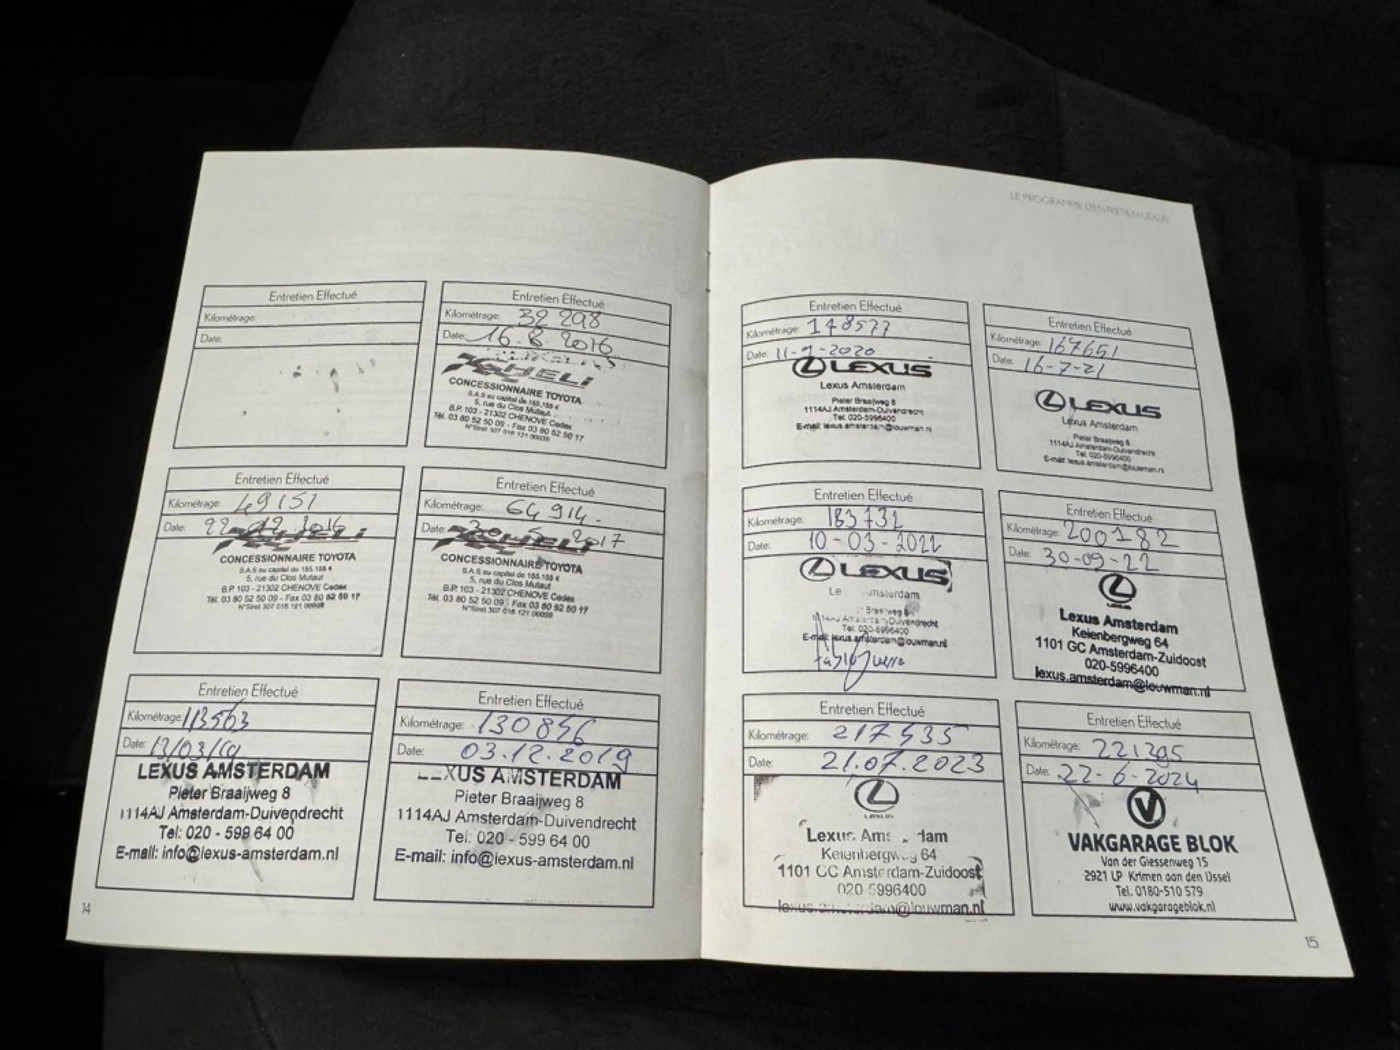 LE PROGRAMME D'ENTRETIEN LEXUS
Entretien Effectué
Kilométrage:
Date:
Entretien Effectué
Kilométrage: 32 298
Date: 16.8.2016
HELI
CONCESSIONNAIRE TOYOTA
S.A.S au capital de 155.155 €
5, rue du Clos Mutaut
B.P. 103 - 21302 CHENOVE Cedex
Tél. 03 80 52 50 09 - Fax 03 80 52 50 17
N°Siret 307 016 121 00035
Entretien Effectué
Kilométrage: 49151
Date: 22 2016
HELI
CONCESSIONNAIRE TOYOTA
S.A.S au capital de 155.155 €
5, rue du Clos Mutaut
B.P. 103 - 21302 CHENOVE Cedex
Tél. 03 80 52 50 09 - Fax 03 80 52 50 17
N°Siret 307 016 121 00035
Entretien Effectué
Kilométrage: 64 914.
Date: 2017
HELI
CONCESSIONNAIRE TOYOTA
S.A.S au capital de 155.155 €
5, rue du Clos Mutaut
B.P. 103 - 21302 CHENOVE Cedex
Tél. 03 80 52 50 09 - Fax 03 80 52 50 17
N°Siret 307 016 121 00035
Entretien Effectué
Kilométrage: 113563
Date: 13/03/19
LEXUS AMSTERDAM
Pieter Braaijweg 8
1114AJ Amsterdam-Duivendrecht
Tel: 020 - 599 64 00
E-mail: info@lexus-amsterdam.nl
Entretien Effectué
Kilométrage: 130856
Date: 03.12.2019
LEXUS AMSTERDAM
Pieter Braaijweg 8
1114AJ Amsterdam-Duivendrecht
Tel: 020 - 599 64 00
E-mail: info@lexus-amsterdam.nl
14
Entretien Effectué
Kilométrage: 148577
Date: 11-9-2020
LEXUS
Lexus Amsterdam
Pieter Braaijweg 8
1114AJ Amsterdam-Duivendrecht
Tel: 020-5996400
E-mail: lexus.amsterdam@louwman.nl
Entretien Effectué
Kilométrage: 167651
Date: 16-7-21
LEXUS
Lexus Amsterdam
Pieter Braaijweg 8
1114AJ Amsterdam-Duivendrecht
Tel: 020-5996400
E-mail: lexus.amsterdam@louwman.nl
Entretien Effectué
Kilométrage: 183732
Date: 10-03-2022
LEXUS
Le msterdam
Braaijweg 8
1114AJ Amsterdam-Duivendrecht
Tel: 020-5996400
E-mail: lexus.amsterdam@louwman.nl
Entretien Effectué
Kilométrage: 200182
Date: 30-09-22
LEXUS
Lexus Amsterdam
Keienbergweg 64
1101 GC Amsterdam-Zuidoost
020-5996400
lexus.amsterdam@louwman.nl
Entretien Effectué
Kilométrage: 217535
Date: 21.07.2023
LEXUS
Lexus Amsterdam
Keienbergweg 64
1101 GC Amsterdam-Zuidoost
020 5996400
lexus.amsterdam@louwman.nl
Entretien Effectué
Kilométrage: 221395
Date: 22-6-2024
V
VAKGARAGE BLOK
Van der Giessenweg 15
2921 LP Krimpen aan den IJssel
Tel. 0180-510 579
www.vakgarageblok.nl
15